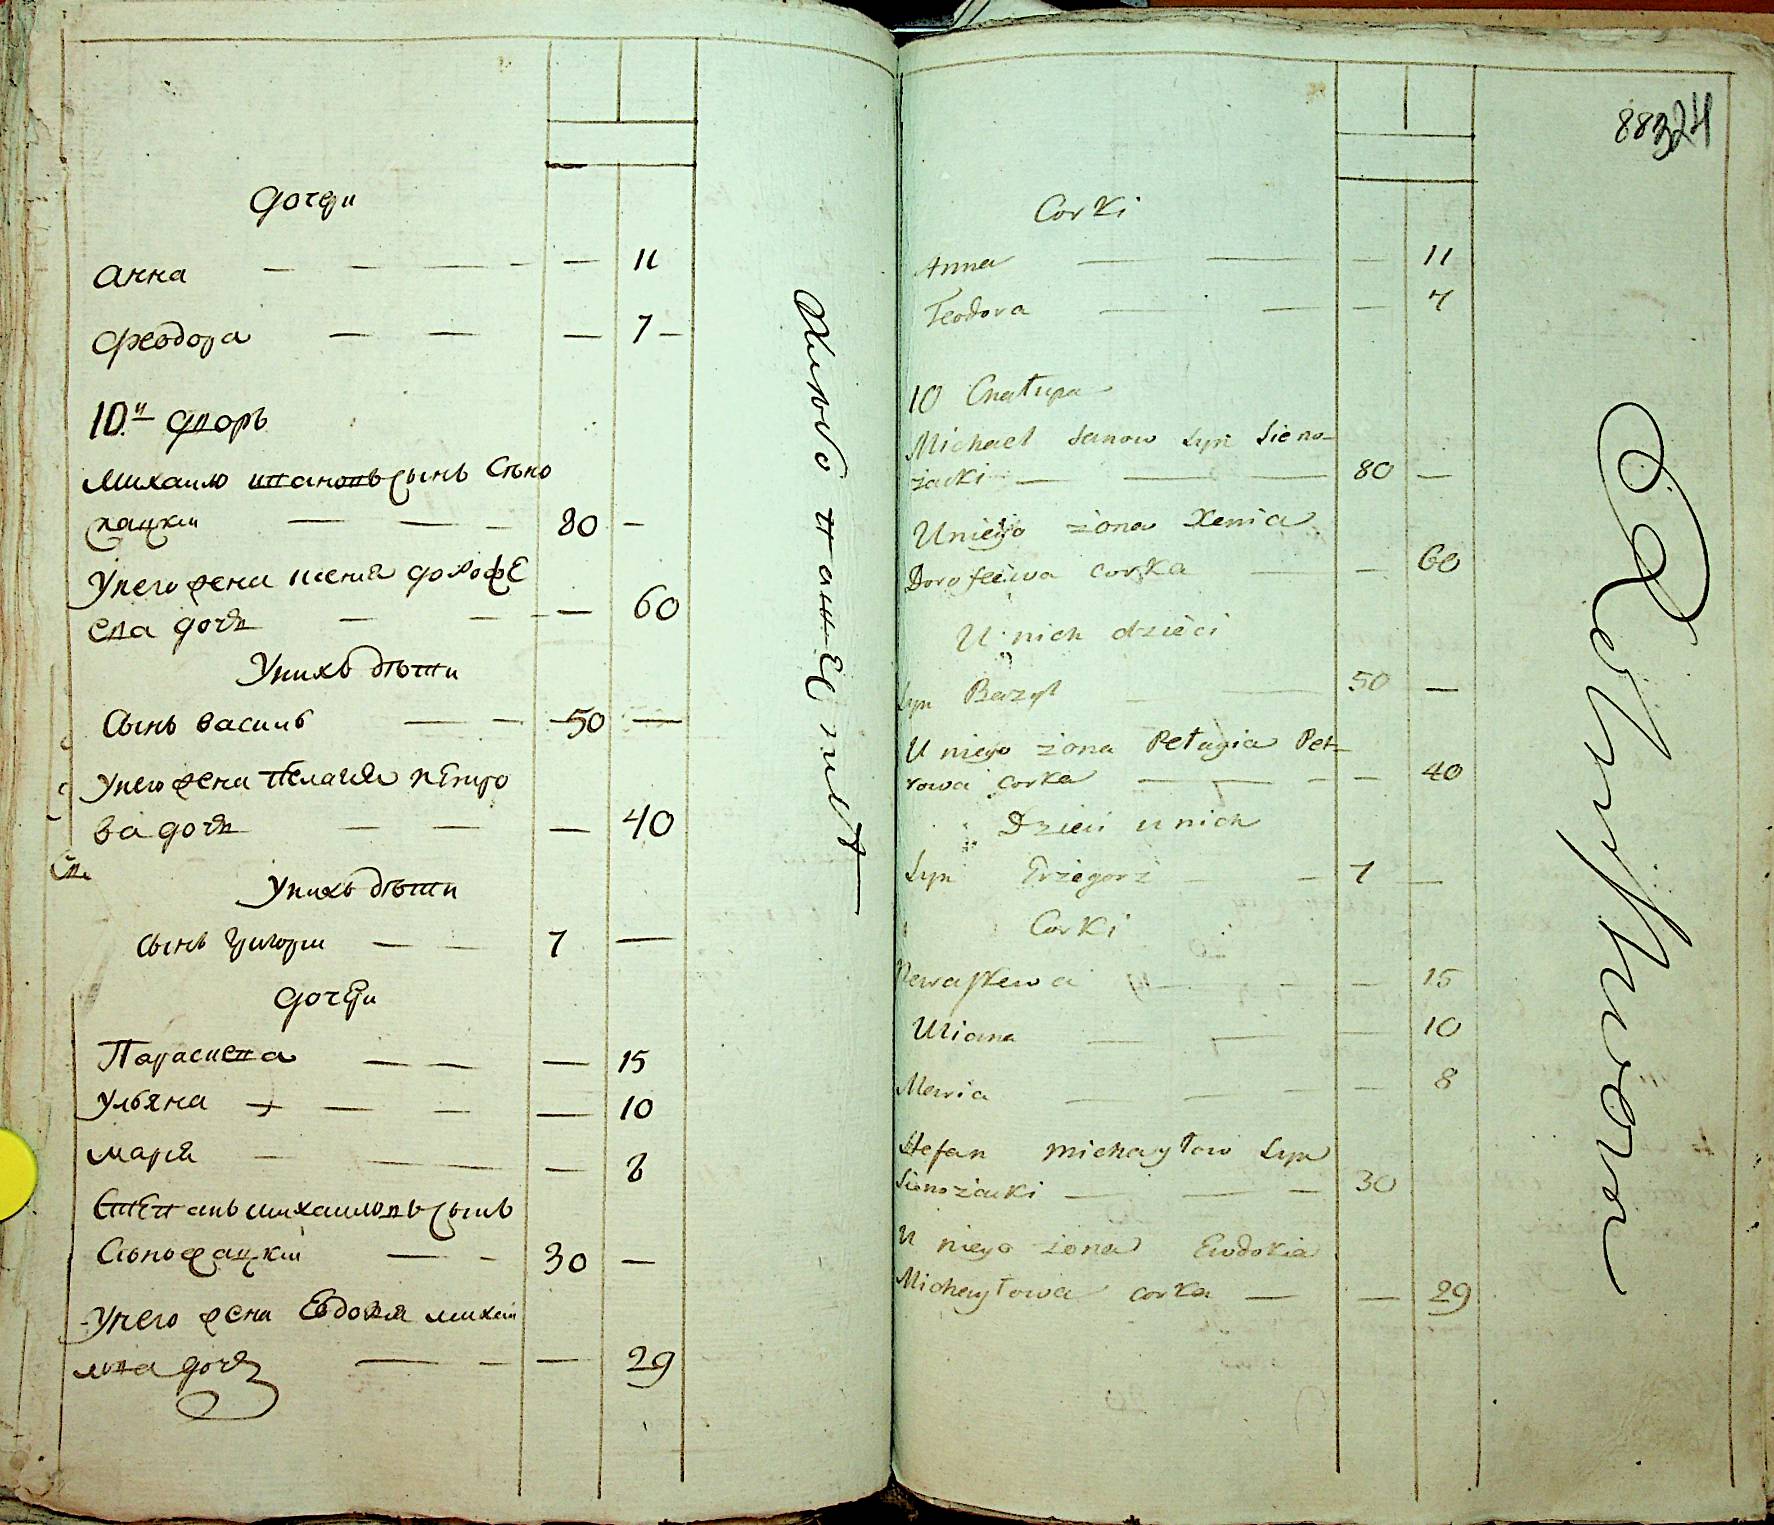 дочери
анна — — — — — 11
феодора — — — 7 —
10й дворъ
михаило ивановъ сынъ Сѣно
жацкiй — — — 80 —
Унего жена ксения дорофе
ева дочь — — — 60
Унихъ дѣти
Сынъ василь — — 50 —
унего жена пелагия петро
ва дочь — — — 40
Унихъ дѣти
сынъ григорiй — — 7 —
дочери
Параскева — — — 15
ульяна — — — — 10
марiя — — — 8
Степанъ михаиловъ сынъ
Сѣножацкiй — — 30 —
-унего жена Евдокiя михай
лова дочь — — — 29
88324
Corki
Anna — — — 11
Teodora — — — 7
10 Chałupa
Michael Janow Syn Sieno-
żacki — — — 80 —
U niego żona Xenia
Dorofeiowa corka — — 60
U nich dzieci
Syn Bazyl — — 50 —
U niego żona Pełagia Pet-
rowa corka — — — — 40
Dzieci u nich
Syn Grzegorz — — 7 —
Corki
Paraskewa — — — 15
Uliana — — — 10
Maria — — — 8
Stefan Michayłow Syn
Sienożacki — — — 30
U niego żona Ewdokia
Michayłowa corka — — 29